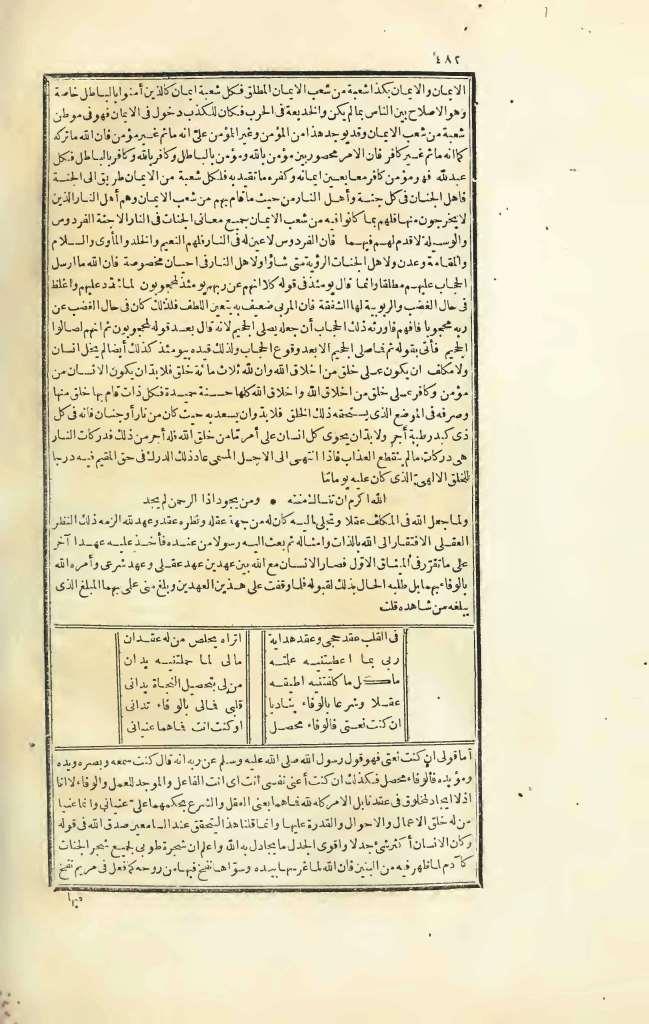 ٤٨٢
الايمان والايمان بكذا شعبة من شعب الايمان المطلق فكل شعبة ايمان كالذين آمنوا بالباطل خاصة
وهو الاصلاح بين الناس بما لم يكن والخديعة فى الحرب فكان للكذب دخول فى الايمان فهو فى موطن
شعبة من شعب الايمان وقد يوجد هذا من المؤمن وغير المؤمن على انه ما ثم غير مؤمن فان الله ما تركه
كما انه ما ثم غير كافر فان الامر محصور بين مؤمن بالله ومؤمن بالباطل وكافر بالله وكافر بالباطل فكل
عبد لله فهو مؤمن كافر معا يعين ايمانه وكفره ما تقيد به فلكل شعبة من الايمان طريق الى الجنة
فاهل الجنان فى كل جنة وأهل النار من حيث ما قام بهم من شعب الايمان وهم أهل النار الذين
لا يخرجون منها فلهم بما كانوا فيه من شعب الايمان جميع معانى الجنات فى النار الا جنة الفردوس
والوسيلة لا قدم لهم فيهما فان الفردوس لا عين له فى النار فلهم النعيم والخلد والمأوى والسلام
والمقامة وعدن ولاهل الجنات الرؤية متى شاؤا ولاهل النار فى احيان مخصوصة فان الله ما ارسل
الحجاب عليهم مطلقا وانما قال يومئذ فى قوله كلا انهم عن ربهم يومئذ لمحجوبون لما تقدد عليهم واغلظ
فى حال الغضب والربوبية لها الشفقة فان المربى ضعيف يتعين به اللطف فلذلك كان فى حال الغضب عن
ربه محجوبا فافهم فاورثه ذلك الحجاب أن جعله يصلى الجحيم لانه قال بعد قوله لمحجوبون ثم انهم لصالوا
الجحيم فأتى بقوله ثم فما صلى الجحيم الا بعد وقوع الحجاب ولذلك قيده بيومئذ كذلك أيضا لم يخل انسان
ولا مكلف ان يكون على خلق من اخلاق الله وان لله ثلاث مائة خلق فلا بد ان يكون الانسان من
مؤمن وكافر على خلق من اخلاق الله واخلاق الله كلها حسنة حميدة فكل ذات قام بها خلق منها
وصرفه فى الموضع الذى يستحقه ذلك الخلق فلا بد وان يسعد به حيث كان من نار أو جنان فانه فى كل
ذى كبد رطبة أجر ولا بد ان يحوى كل انسان على أمر ما من خلق الله فله أجر من ذلك فدركات النار
هى دركات ما لم ينقطع العذاب فاذا انتهى الى الاجل المسمى عاد ذلك الدرك فى حق المقيم فيه درجا
للخلق الالهى الذى كان عليه يوما ما
الله اكرم ان تنالك منته • ومن يجود اذا الرحمن لم يجد
ولما جعل الله فى المكلف عقلا وتجلى اليه كان له من جهة عقله ونظره عقد وعهد لله الزمه ذلك النظر
العقلى الافتقار الى الله بالذات وامثاله ثم بعث اليه رسولا من عنده فأخذ عليه عهدا آخر
على ما تقرر فى الميثاق الاول فصار الانسان مع الله بين عهدين عهد عقلى وعهد شرعى وأمره الله
بالوفاء بهما بل طلبه الحال بذلك لقبوله فلما وقفت على هذين العهدين وبلغ منى على بهما المبلغ الذى
يبلغه من شاهده قلت
فى القلب عقد حجى وعقد هداية اتراه يخلص من له عقدان
ربى بما اعطيتنيه علته مالى لما حملتنيه يدان
ما كل ما كلفتنيه اطيقه من لى بتحصيل النجاة يدانى
عقلا وشرعا بالوفاء يناديا قلبى فالى بالوفاء تدانى
ان كنت نعتى فالوفاء محصل او كنت انت فما هما عنيانى
أما قولى ان كنت نعتى فهو قول رسول الله صلى الله عليه وسلم عن ربه انه قال كنت سمعه وبصره ويده
ومؤيده فالوفاء محصل فكذلك ان كنت أعنى نفسى انت اى انت الفاعل والموجد للعمل والوفاء لا انا
اذ لا ايجاد لمخلوق فى عقدنا بل الامر كله لله فما هما يعنى العقل والشرع بحكمهما على عنيانى وانما عنيا
من له خلق الاعمال والاحوال والقدرة عليها وانما قلنا هذا ليتحقق عند السامعين صدق الله فى قوله
وكان الانسان أكثر شئ جدلا واقوى الجدل ما يجادل به الله واعلم ان شجرة طوبى لجميع شجر الجنات
كآدم لما ظهر فيه من البنين فان الله لما غرسها بيده وسواها نفخ فيها من روحه كما فعل فى مريم نفخ
فيها